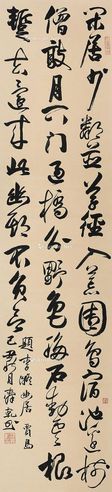 閑居少鄰並草徑入荒園鳥宿池邊樹
僧敲月下門過橋分野色移石動雲根
暫去還來此幽期不負言
題李凝幽居 賈島